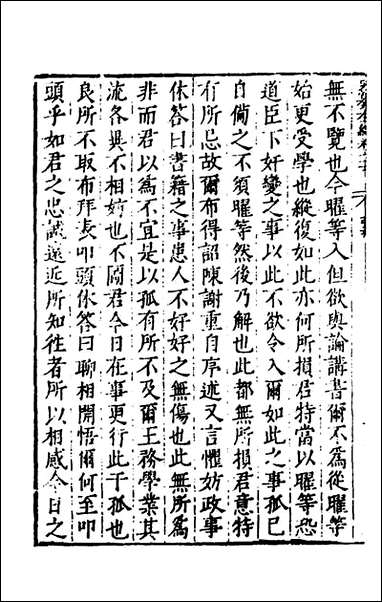 無不覽也今曜等入但欲與論講書爾不為從曜等
始更受學也縱復如此亦何所損君特當以曜等恐
道臣下奸變之事以此不欲令入爾如此之事孤已
自備之不須曜等然後乃解也此都無所損君意特
有所忌故爾布得詔陳謝重自序述又言懼妨政事
休答曰書籍之事患人不好好之無傷也此無所為
非而君以為不宜是以孤有所不及爾王務學業其
流各異不相妨也不圖君今日在事更行此于孤也
良所不取布拜表叩頭休答曰聊相開悟爾何至叩
頭乎如君之忠誠遠近所知往者所以相感今日之